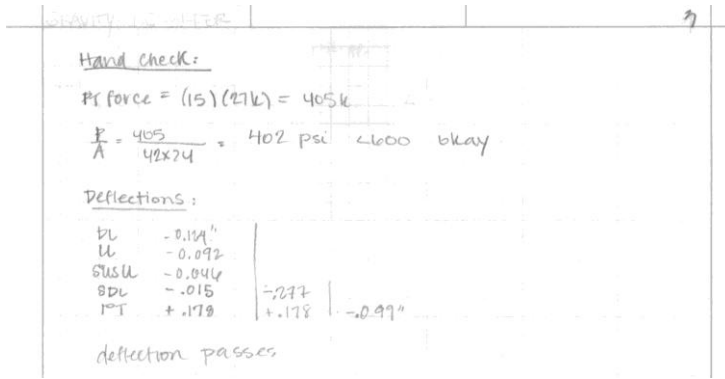 3
Hand check:
PT force = (15)(27k) = 405k
P/A = 405/42x24 = 402 psi <600 okay
Deflections:
DL -0.124"
LL -0.092
SUSLL -0.046
SDL -.015 -.277
PT +.178 +.178 -.099"
deflection passes